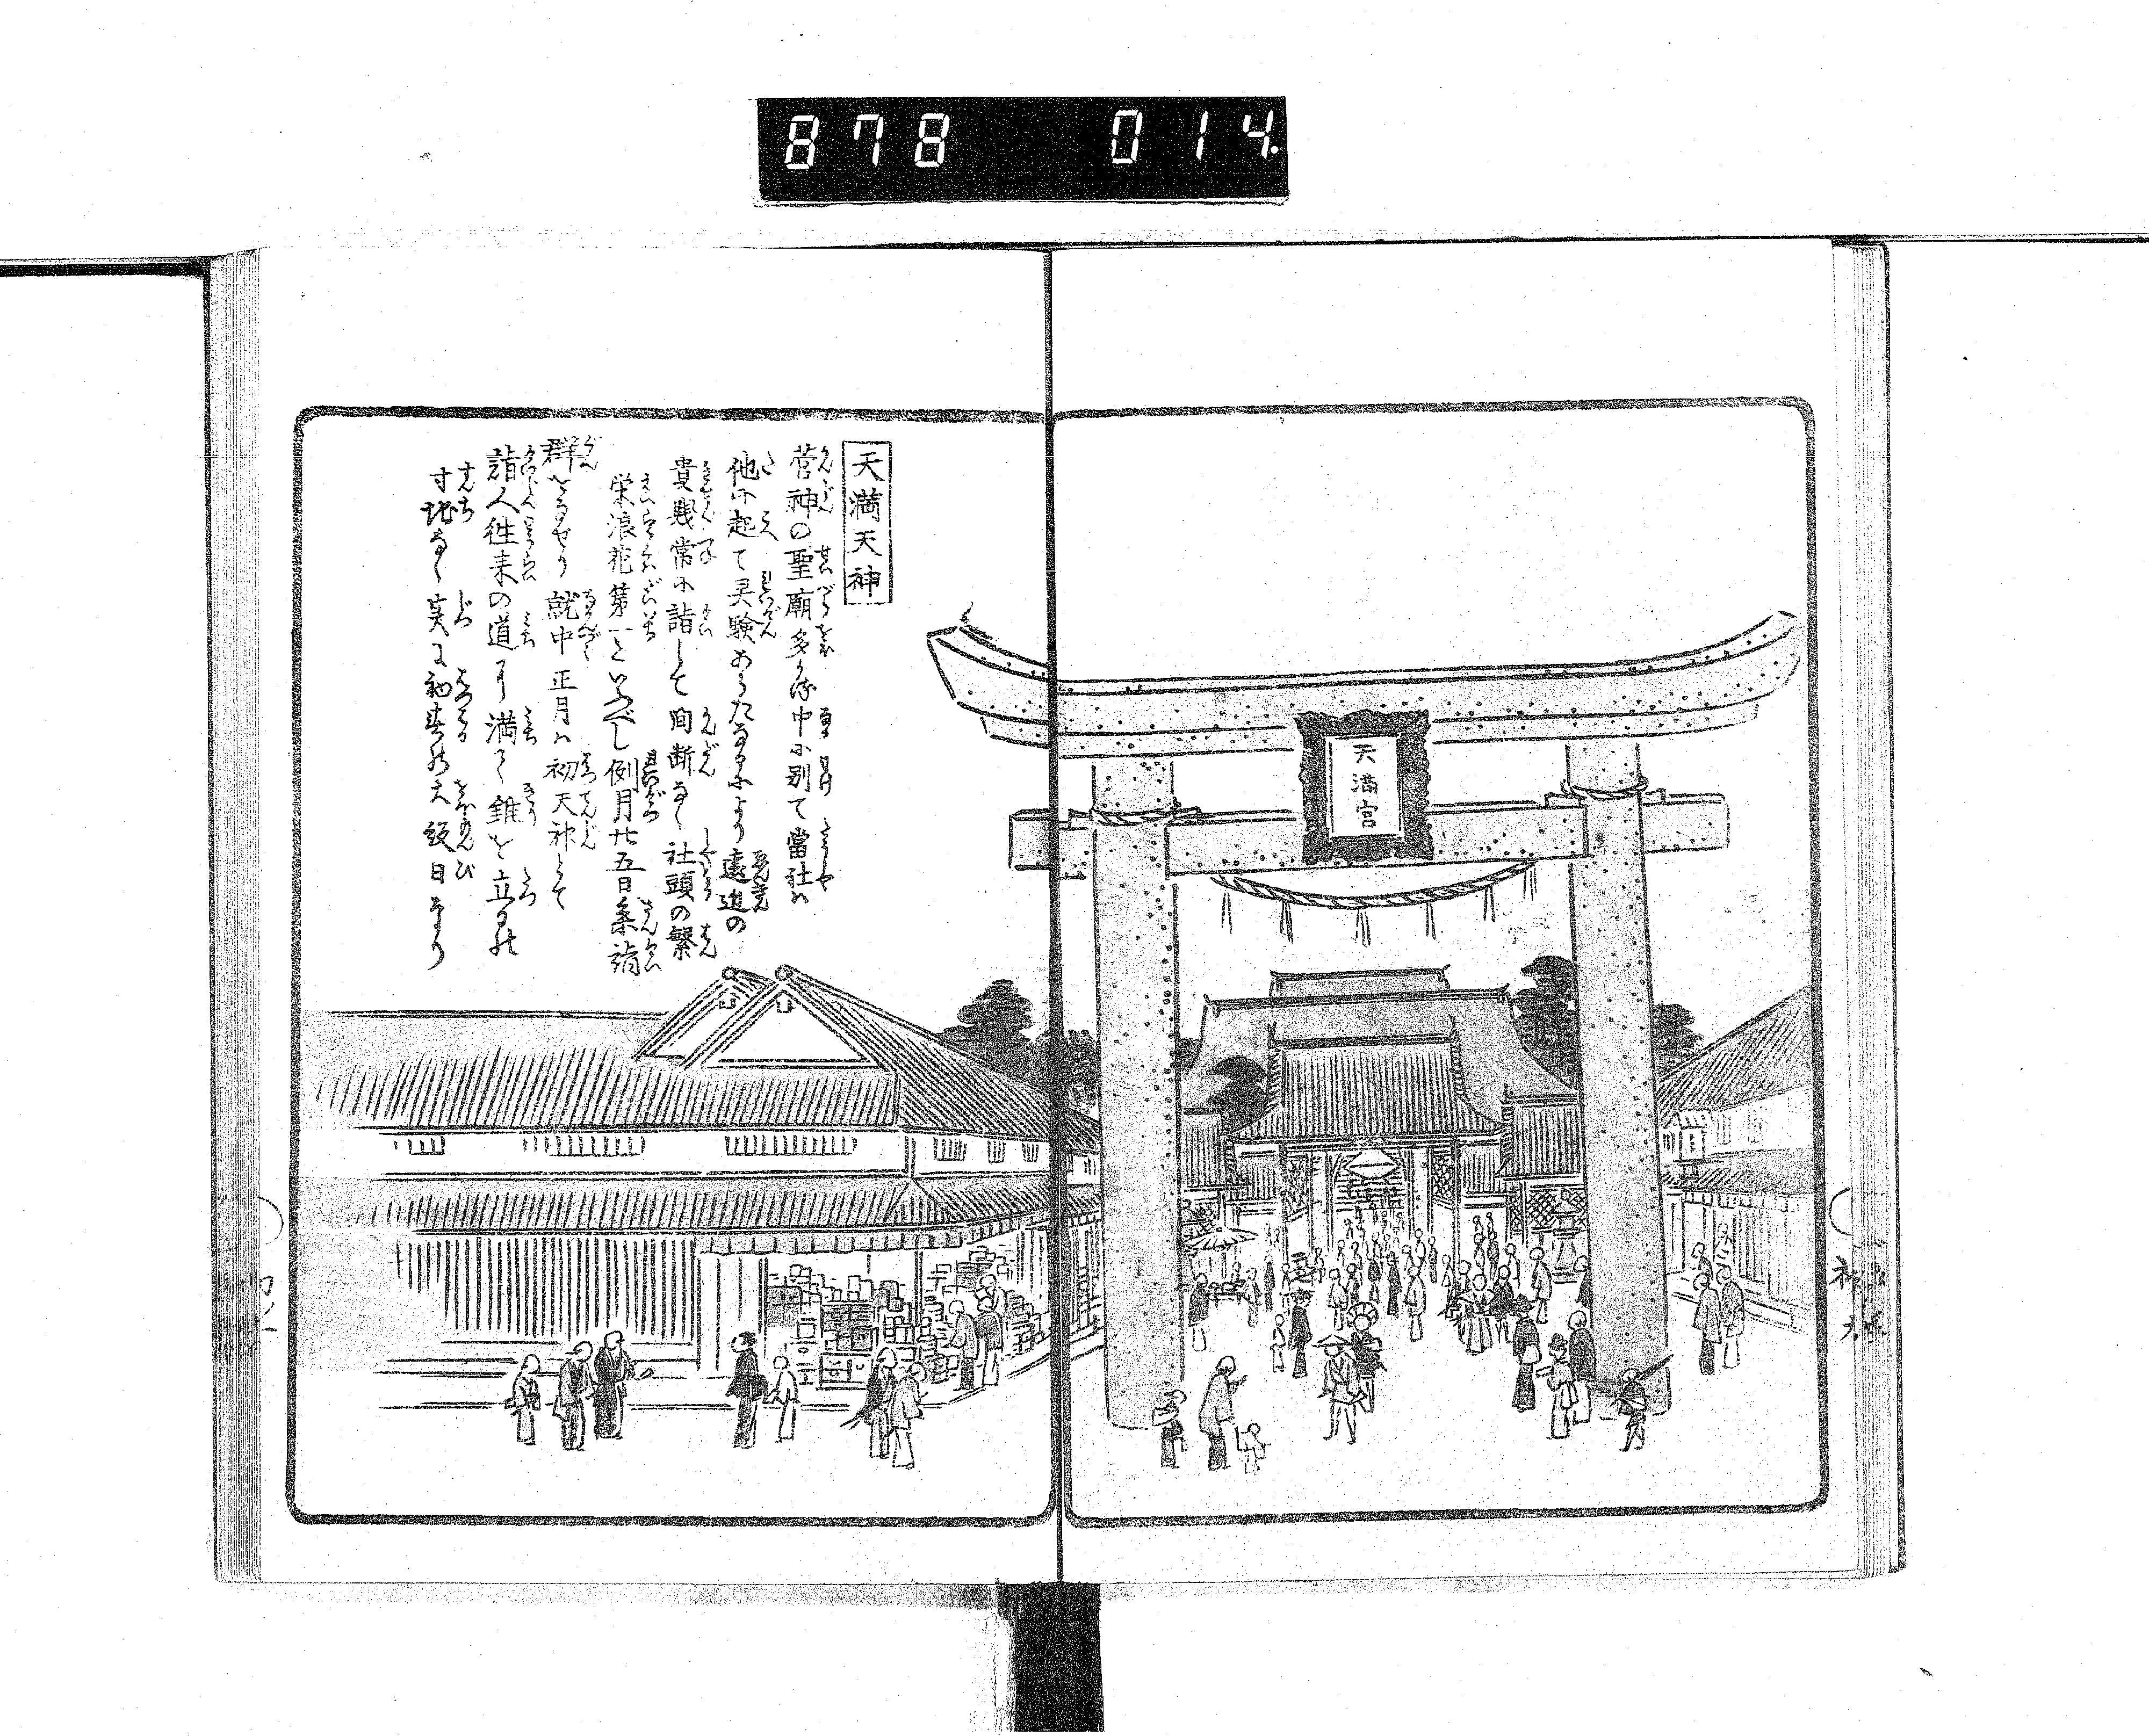 878 014.
天満宮
天満天神
菅神の聖廟多かる中に別て當社ハ
他に起て灵驗あらたなるにより遠近の
貴賎常に詣して間断なく社頭の繁
栄浪花第一といふべし例月廿五日参詣
群をなせり就中正月ハ初天神とて
詣人徃来の道に満て錐を立るの
寸地なし実に初春の大紋日なり